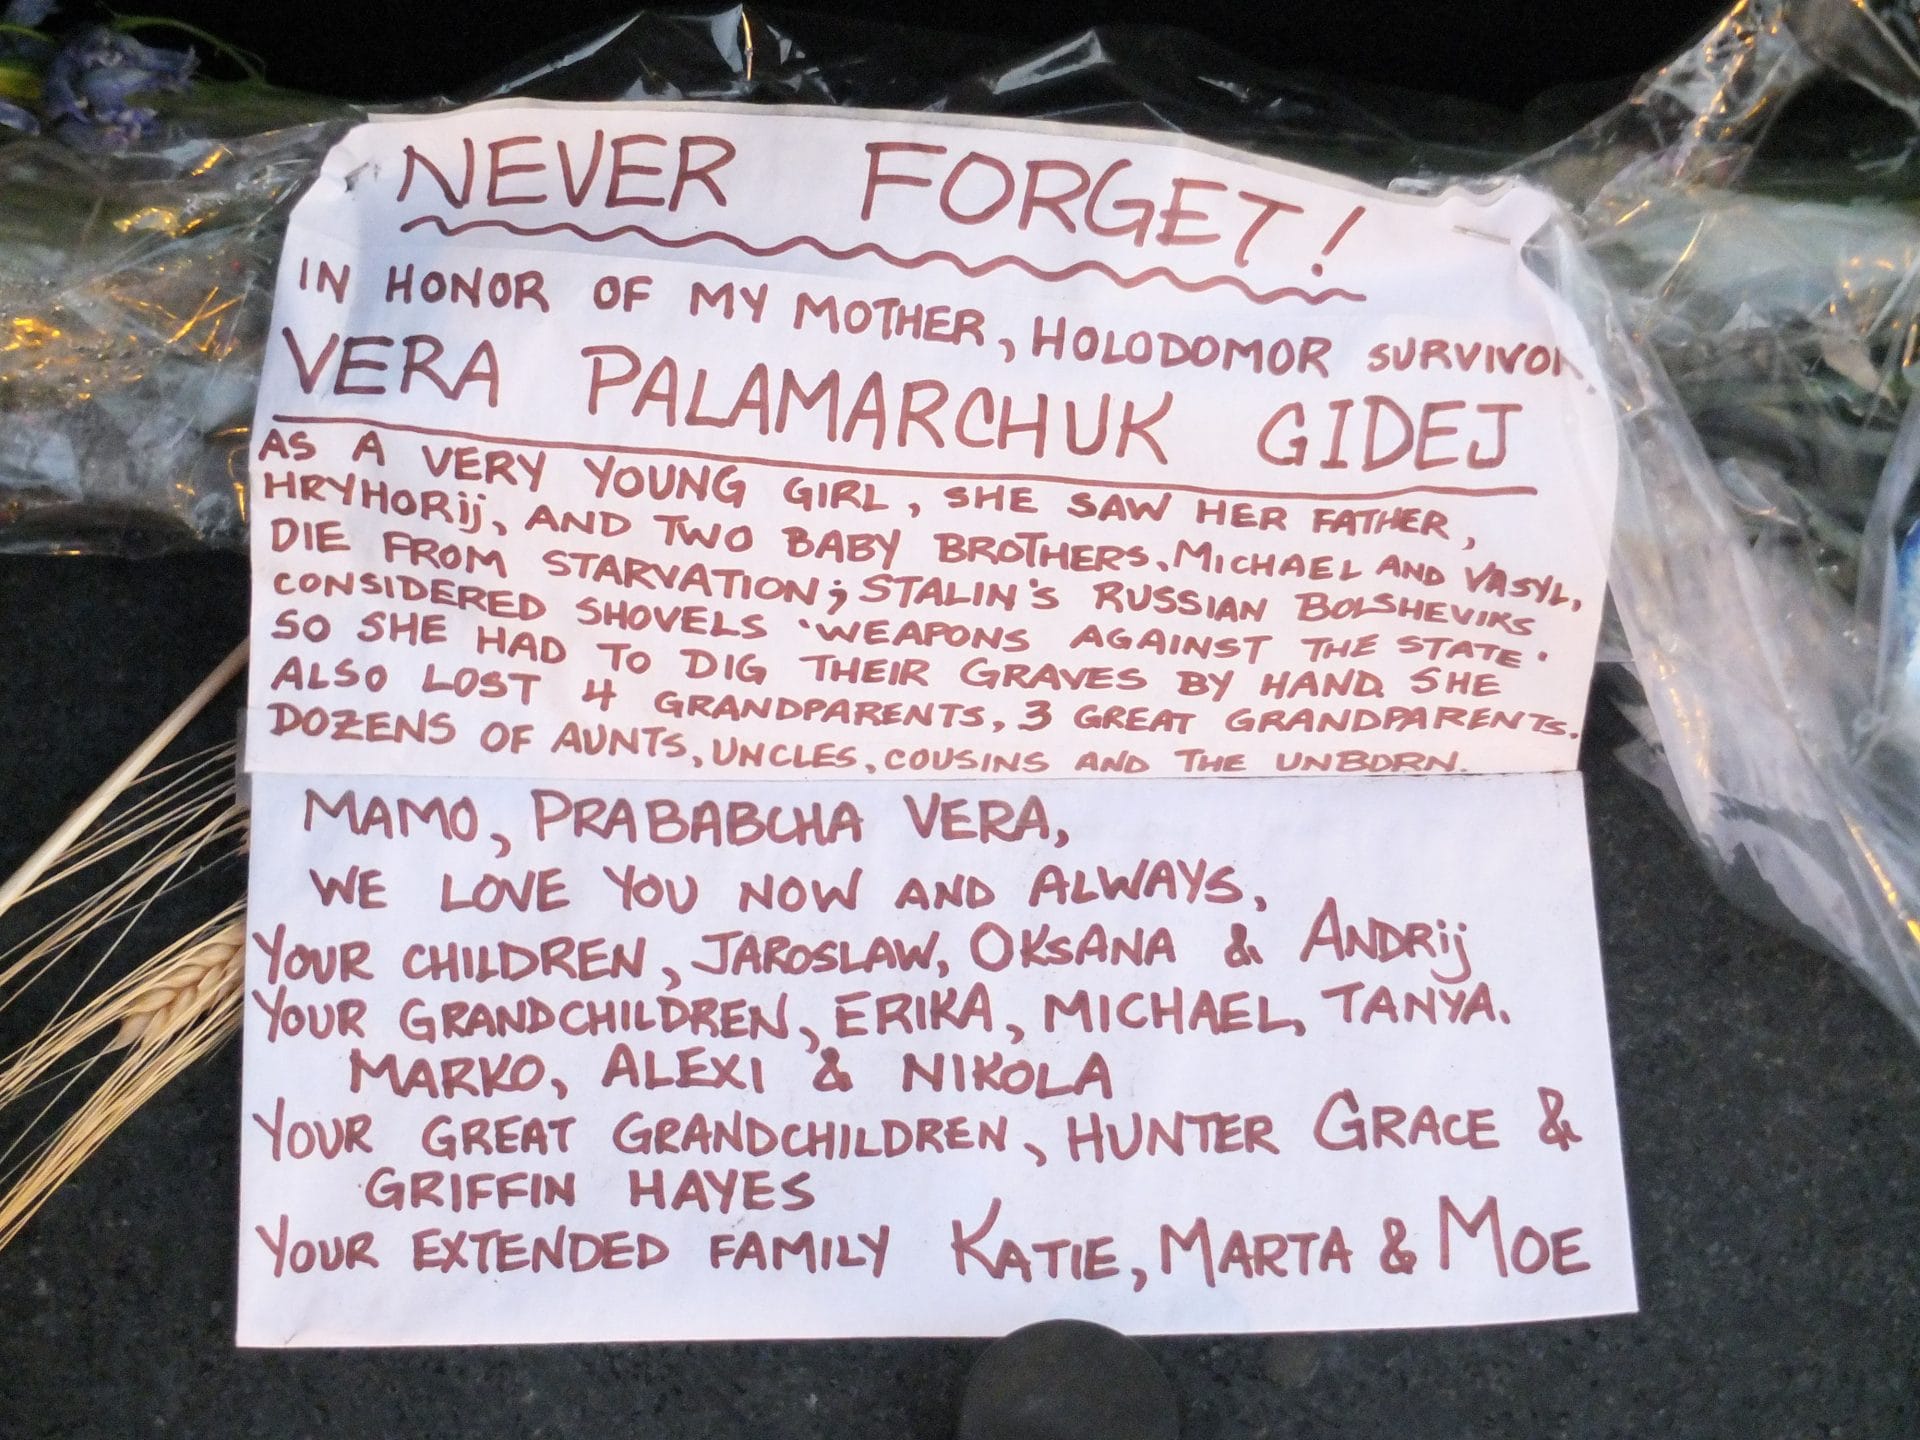 NEVER FORGET!
IN HONOR OF MY MOTHER, HOLODOMOR SURVIVOR
VERA PALAMARCHUK GIDEJ
AS A VERY YOUNG GIRL, SHE SAW HER FATHER,
HRYHORij, AND TWO BABY BROTHERS, MICHAEL AND VASYL,
DIE FROM STARVATION; STALIN'S RUSSIAN BOLSHEVIKS
CONSIDERED SHOVELS 'WEAPONS AGAINST THE STATE'
SO SHE HAD TO DIG THEIR GRAVES BY HAND. SHE
ALSO LOST 4 GRANDPARENTS, 3 GREAT GRANDPARENTS,
DOZENS OF AUNTS, UNCLES, COUSINS AND THE UNBORN.
MAMO, PRABABCHA VERA,
WE LOVE YOU NOW AND ALWAYS,
YOUR CHILDREN, JAROSLAW, OKSANA & ANDRij
YOUR GRANDCHILDREN, ERIKA, MICHAEL, TANYA.
MARKO, ALEXI & NIKOLA
YOUR GREAT GRANDCHILDREN, HUNTER GRACE &
GRIFFIN HAYES
YOUR EXTENDED FAMILY KATIE, MARTA & MOE